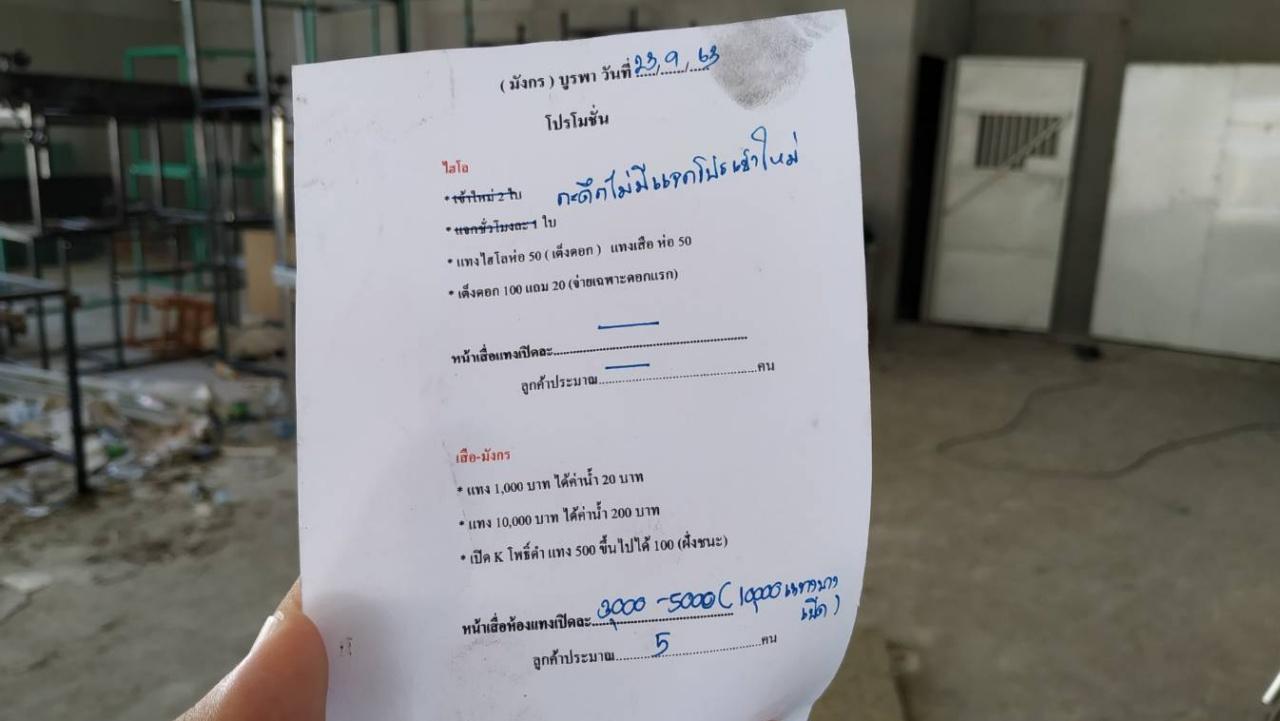 ( มังกร ) บูรพา วันที่ 23/9/63
โปรโมชั่น
ไฮโล
* เข้าใหม่ 2 ใบ กะดึกไม่มีแจกโปรเข้าใหม่
* แจกชั่วโมงละ 1 ใบ
* แทงไฮโลห่อ 50 ( เต็งดอก ) แทงเสือ ห่อ 50
* เต็งดอก 100 แถม 20 (จ่ายเฉพาะดอกแรก)
หน้าเสื่อแทงเปิดละ.......... —
ลูกค้าประมาณ.......... — คน
เสือ-มังกร
* แทง 1,000 บาท ได้ค่าน้ำ 20 บาท
* แทง 10,000 บาท ได้ค่าน้ำ 200 บาท
* เปิด K โพธิ์ดำ แทง 500 ขึ้นไปได้ 100 (ฝั่งชนะ)
หน้าเสื่อห้องแทงเปิดละ 3,000 - 5000 ( 10,000 แทงบาง
เปิด )
ลูกค้าประมาณ 5 คน